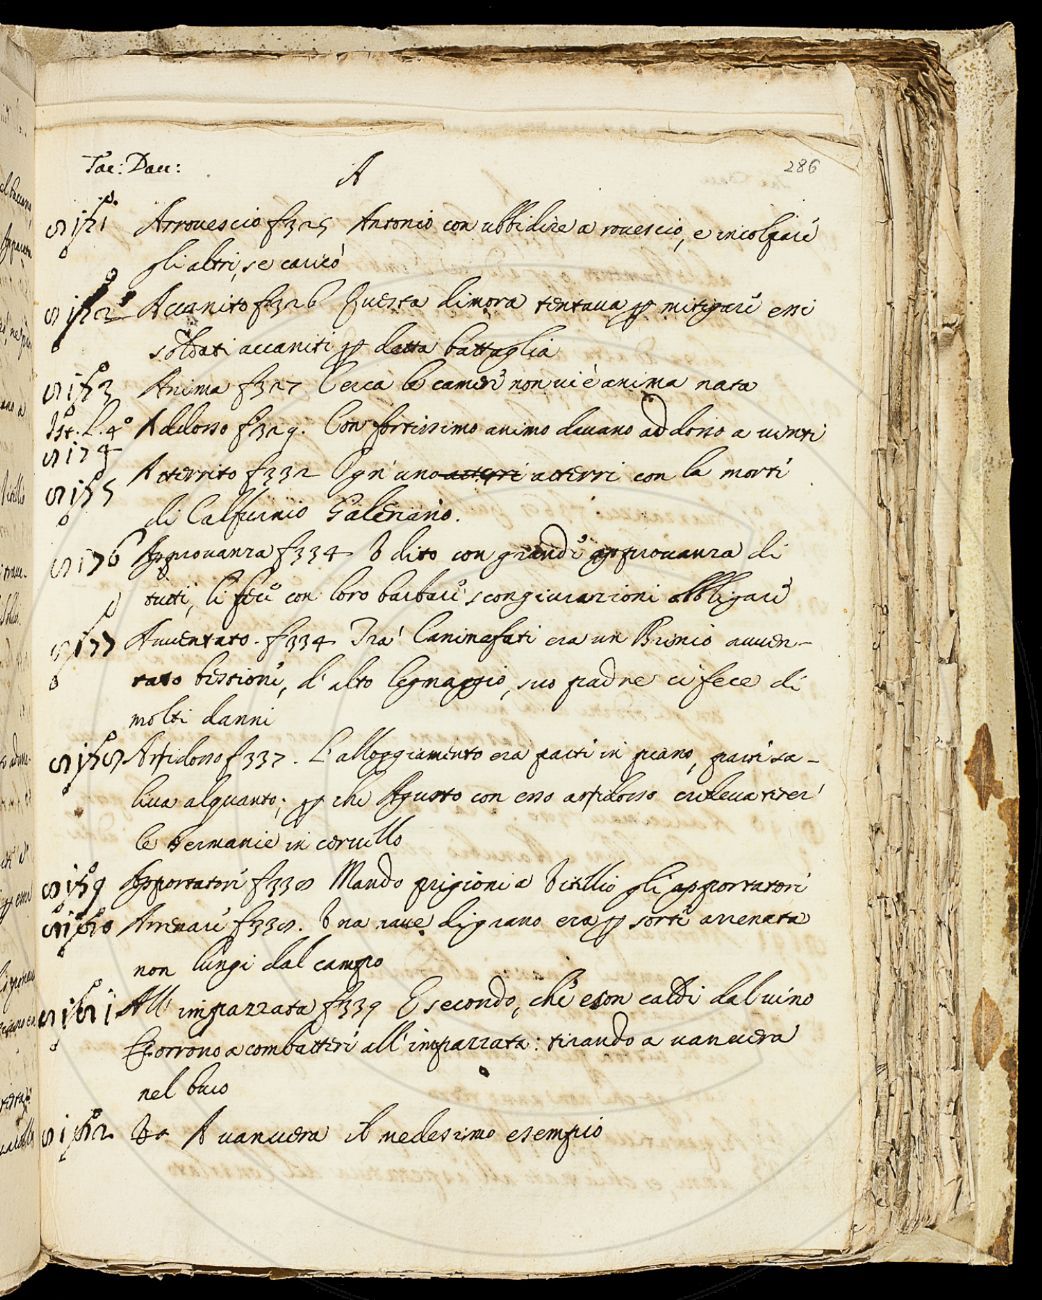 Tac: Dau: A 286
S 171 Arrovescio f 325 Antonio con ubbidire a rovescio, e incolpare
gli altri, se caricò
S 172 Accanito f 326 Questa dimora tentava p mitigare essi
soldati accaniti p detta battaglia
S 173 Anima f 327 Cerca le camere non vi è anima nata
Ist. L. 4º Addosso f 329. Con fortissimo animo davano addosso a vinti
S 174
S 175 Atterrito f 332 Ogn'uno atterri con la morte
di Calfurnio Galeriano.
S 176 Approvanza f 334 Udito con grande approvanza di
tutti, li fece con loro barbare scongiurazioni obbligare
S 177 Avventato. f 334 Tra' Caninefati era un Brinio avven-
tato bestione, d'alto legnaggio, suo padre ci fece di
molti danni
S 178 Arsidosso f 337. L'alloggiamento era parte in piano, parte sa-
liva alquanto; p che Agusto con esso arsidosso credeva tener
le Germanie in cervello
S 179 Apportatori f 338 Mando prigioni a Vitellio gli apportatori
S 180 Arrenare f 338. Una nave di grano era p sorte arrenata
non lungi dal campo
S 181 All'impazzata f 339 E secondo, che eron caldi dal vino
Corrono a combattere all'impazzata: tirando a vanvera
nel buio
S 182 A vanvera il medesimo esempio